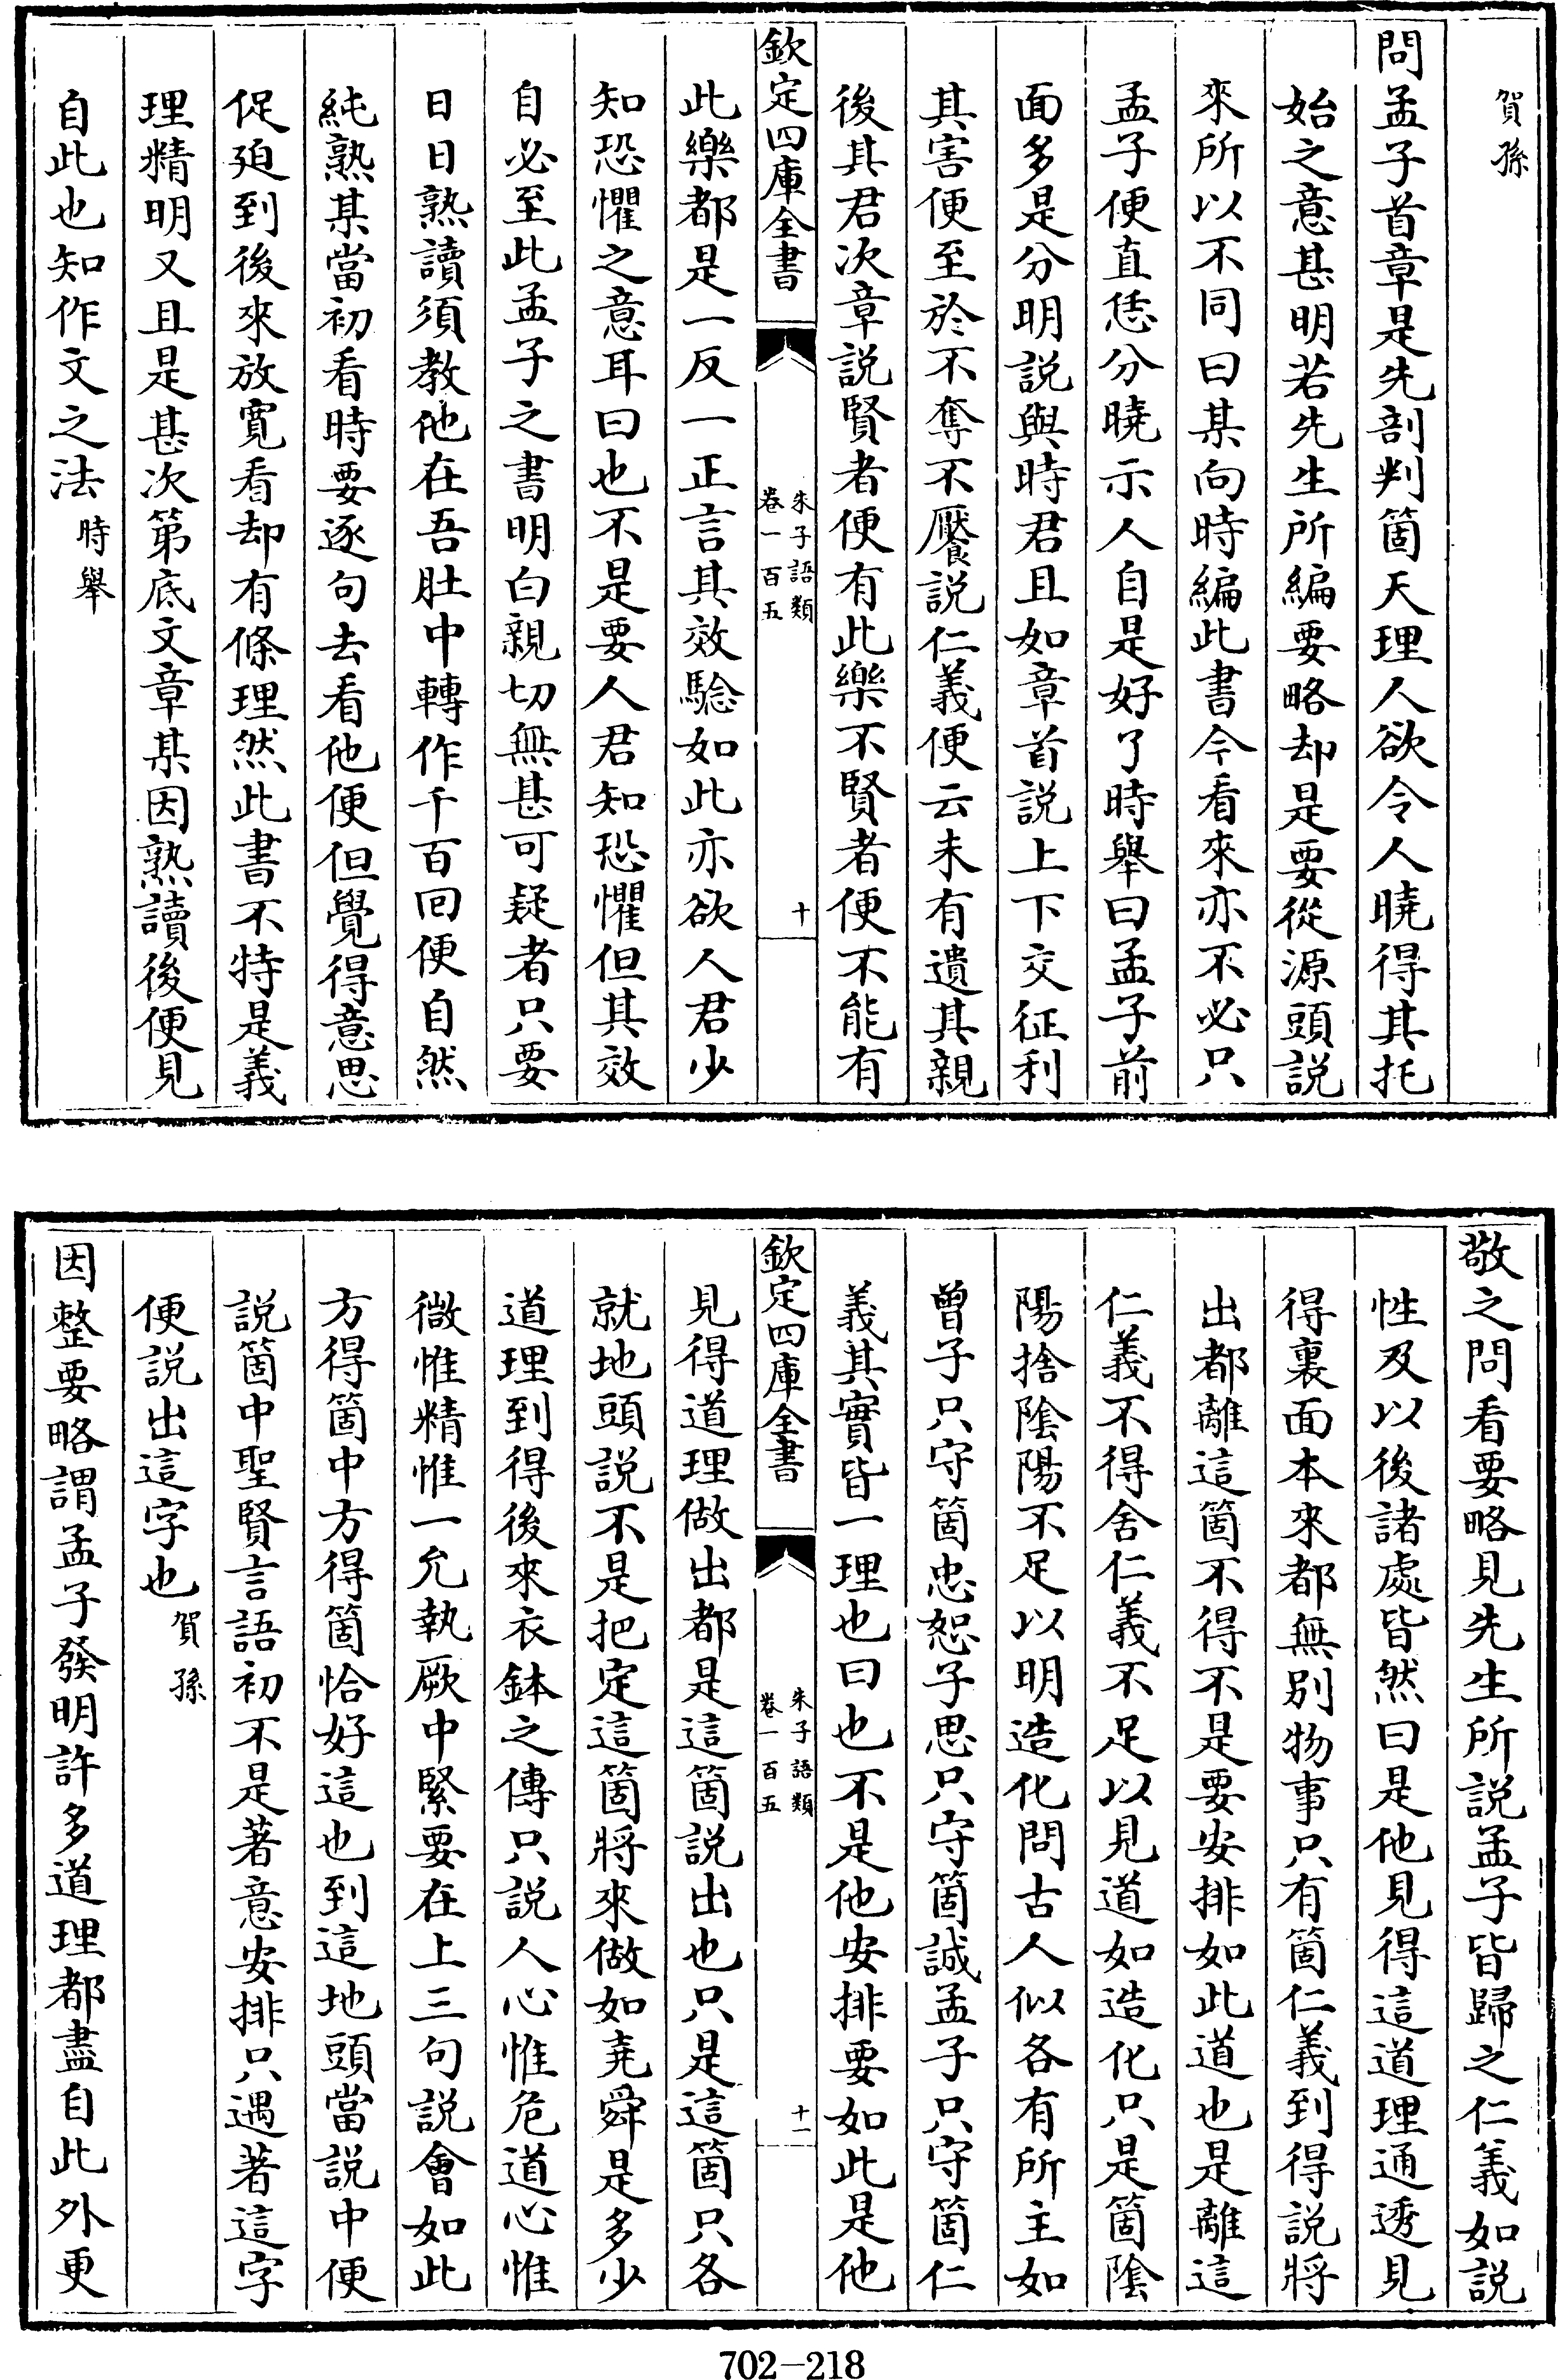 賀孫
問孟子首章是先剖判箇天理人欲令人曉得其托
始之意甚明若先生所編要略却是要從源頭説
來所以不同曰某向時編此書今看來亦不必只
孟子便直恁分曉示人自是好了時舉曰孟子前
面多是分明説與時君且如章首説上下交征利
其害便至於不奪不饜説仁義便云未有遺其親
後其君次章説賢者便有此樂不賢者便不能有
欽定四庫全書
朱子語類
卷一百五
十
此樂都是一反一正言其效驗如此亦欲人君少
知恐懼之意耳曰也不是要人君知恐懼但其效
自必至此孟子之書明白親切無甚可疑者只要
日日熟讀須教他在吾肚中轉作千百回便自然
純熟某當初看時要逐句去看他便但覺得意思
促廹到後來放寛看却有條理然此書不特是義
理精明又且是甚次第底文章某因熟讀後便見
自此也知作文之法時舉
敬之問看要略見先生所説孟子皆歸之仁義如説
性及以後諸處皆然曰是他見得這道理通透見
得裏面本來都無别物事只有箇仁義到得説將
出都離這箇不得不是要安排如此道也是離這
仁義不得舍仁義不足以見道如造化只是箇陰
陽捨陰陽不足以明造化問古人似各有所主如
曾子只守箇忠恕子思只守箇誠孟子只守箇仁
義其實皆一理也曰也不是他安排要如此是他
欽定四庫全書
朱子語類
卷一百五
十一
見得道理做出都是這箇説出也只是這箇只各
就地頭説不是把定這箇將來做如堯舜是多少
道理到得後來衣鉢之傳只説人心惟危道心惟
微惟精惟一允執厥中緊要在上三句説會如此
方得箇中方得箇恰好這也到這地頭當説中便
説箇中聖賢言語初不是著意安排只遇著這字
便説出這字也賀孫
因整要略謂孟子發明許多道理都盡自此外更
702-218